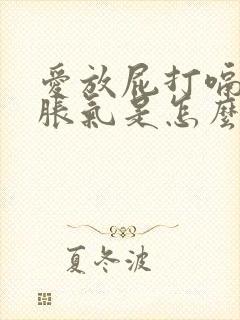 愛放屁打嗝
脹氣是怎麼
夏冬波